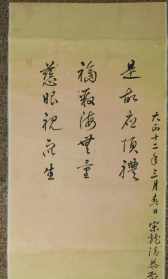 大正十二年三月吉日
是故應頂禮
福聚海無量
慈眼視衆生